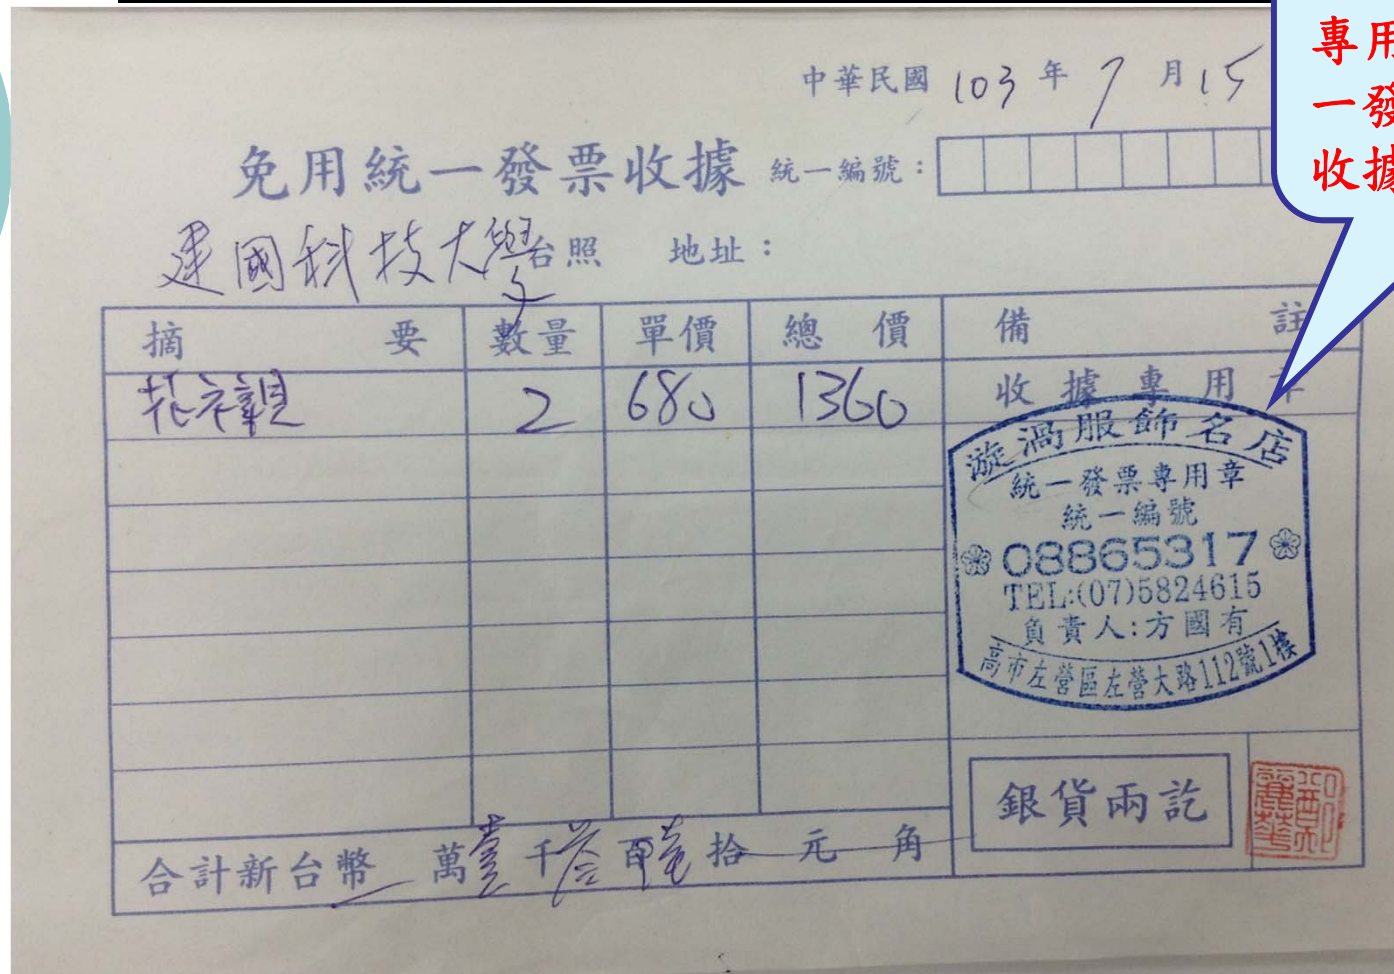 中華民國 103 年 7 月 15
免用統一發票收據 統一編號：
建國科技大學 台照 地址：
摘要 數量 單價 總價 備註
2 680 1360 收據專用章
漩渦服飾名店
統一發票專用章
統一編號
08865317
TEL:(07)5824615
負責人:方國有
高市左營區左營大路112號1樓
銀貨兩訖
合計新台幣 萬壹千 百 拾 元 角
專用
一發
收據